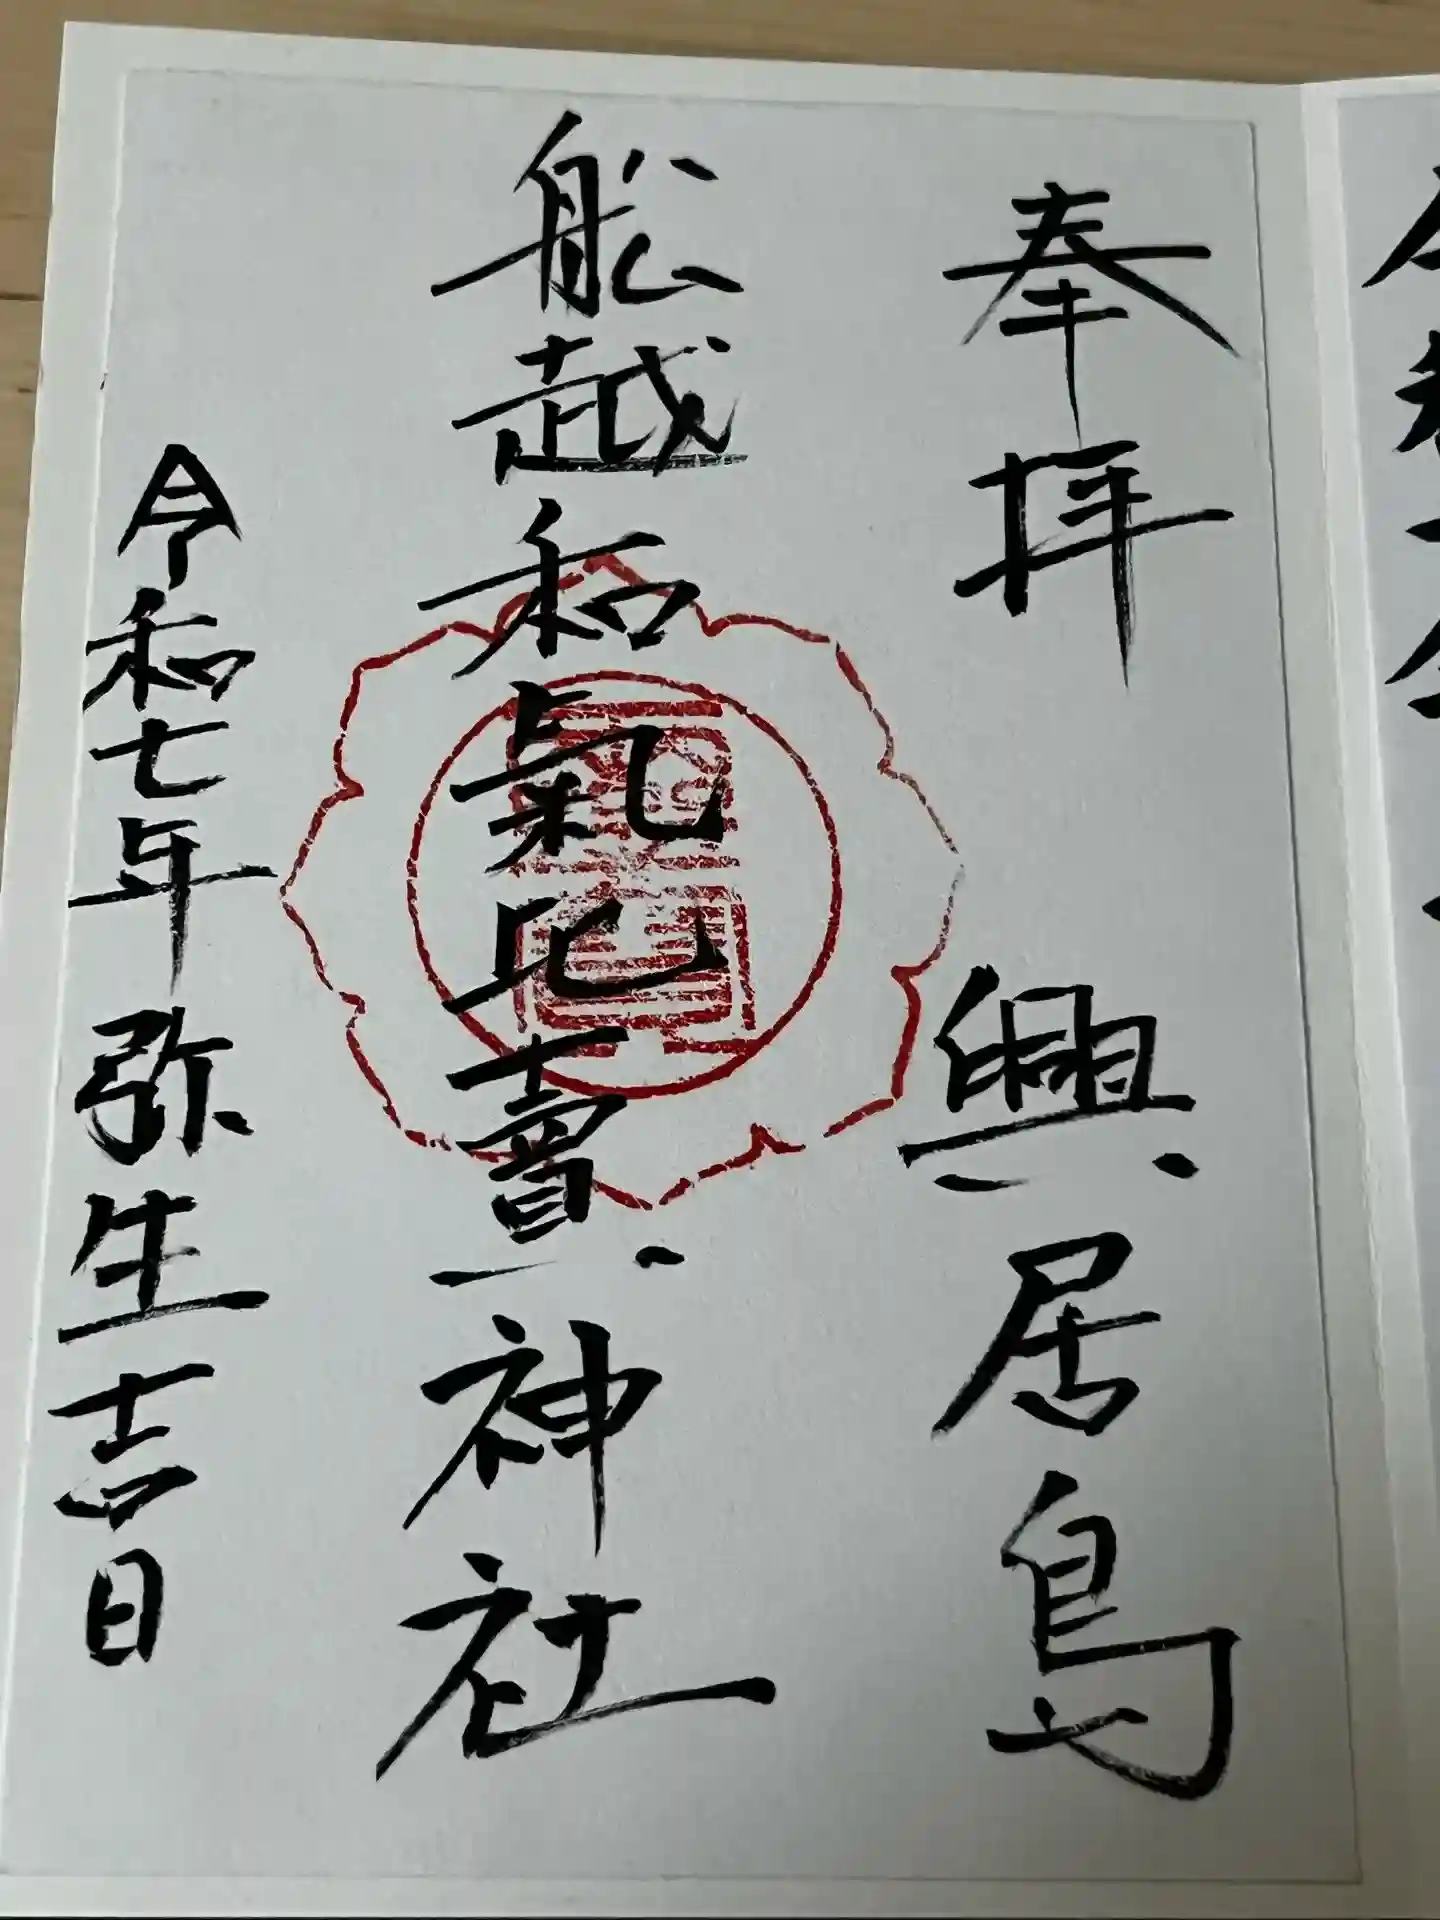 奉拝 興居島
船越和氣比賣神社
令和七年弥生吉日